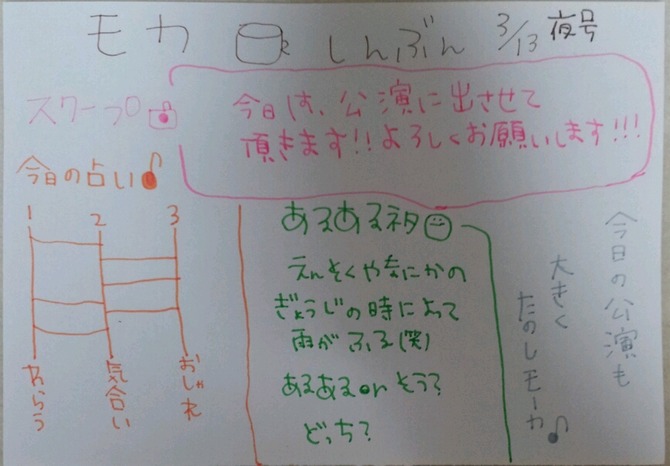 モカ しんぶん 3/13 夜号
スクープ
今日は、公演に出させて
頂きます!!よろしくお願いします!!!
今日の占い♪
1 2 3
わらう 気合い おしゃれ
あるあるネタ
えんそくやなにかの
ぎょうじの時によって
雨がふる(笑)
あるあるorそう?
どっち?
今日の公演も
大きく
たのしモーカ♪